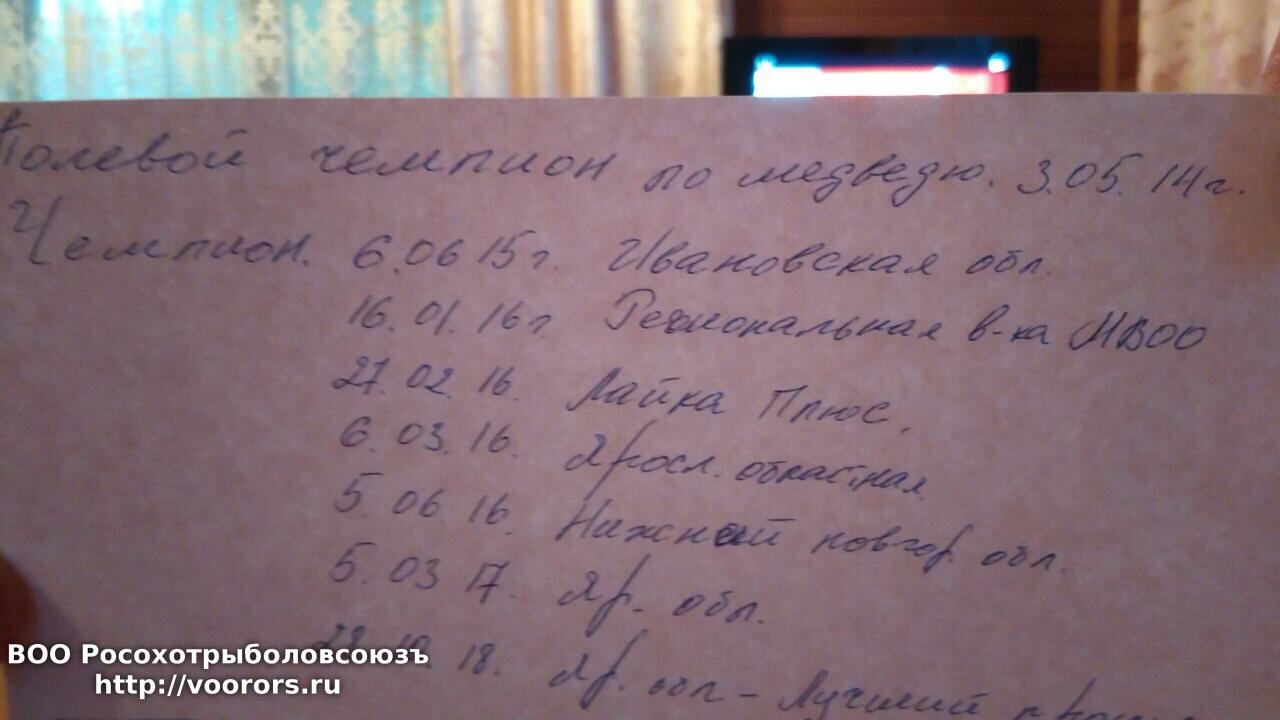 Полевой чемпион по медведю. 3.05.14г.
Чемпион. 6.06 15г. Ивановская обл.
16.01.16г Региональная в-ка МВОО
27.02.16. Лайка Плюс.
6.03.16. Яросл. областная.
5.06.16. Нижний новгор. обл.
5.03 17. Яр. обл.
18. Яр. обл - Лучший
ВОО Росохотрыболовсоюзъ
http://voorors.ru